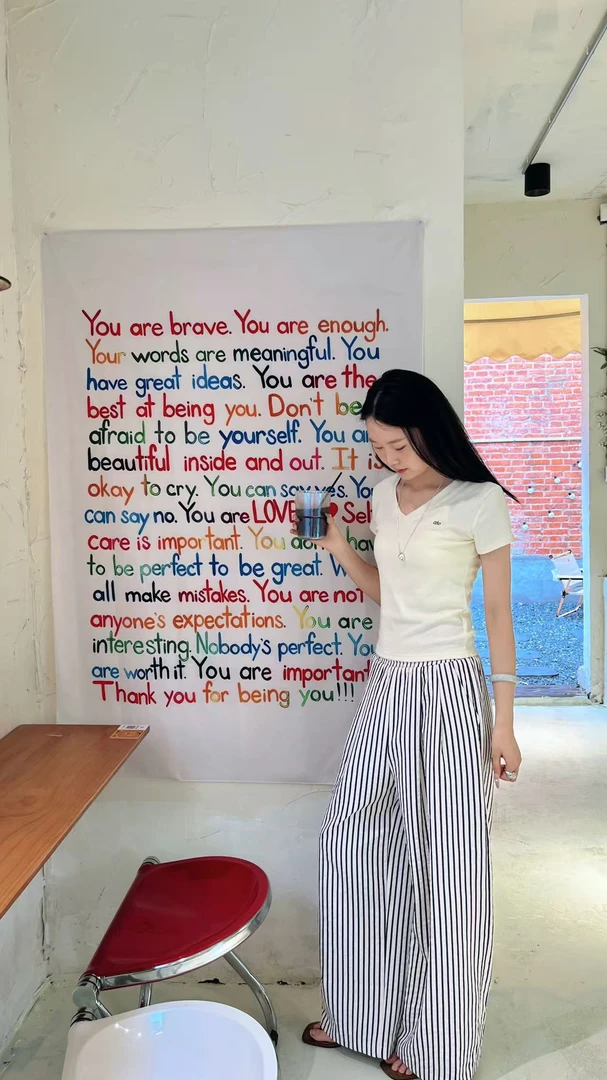 You are brave. You are enough.
Your words are meaningful. You
have great ideas. You are the
best at being you. Don't be
afraid to be yourself. You
beautiful inside and out. It is
okay to cry. You can say yes.
can say no. You are LOVE
care is important. You
to be perfect to be great.
all make mistakes. You are not
anyone's expectations. You are
interesting. Nobody's perfect. You
are worth it. You are important
Thank you for being you!!!